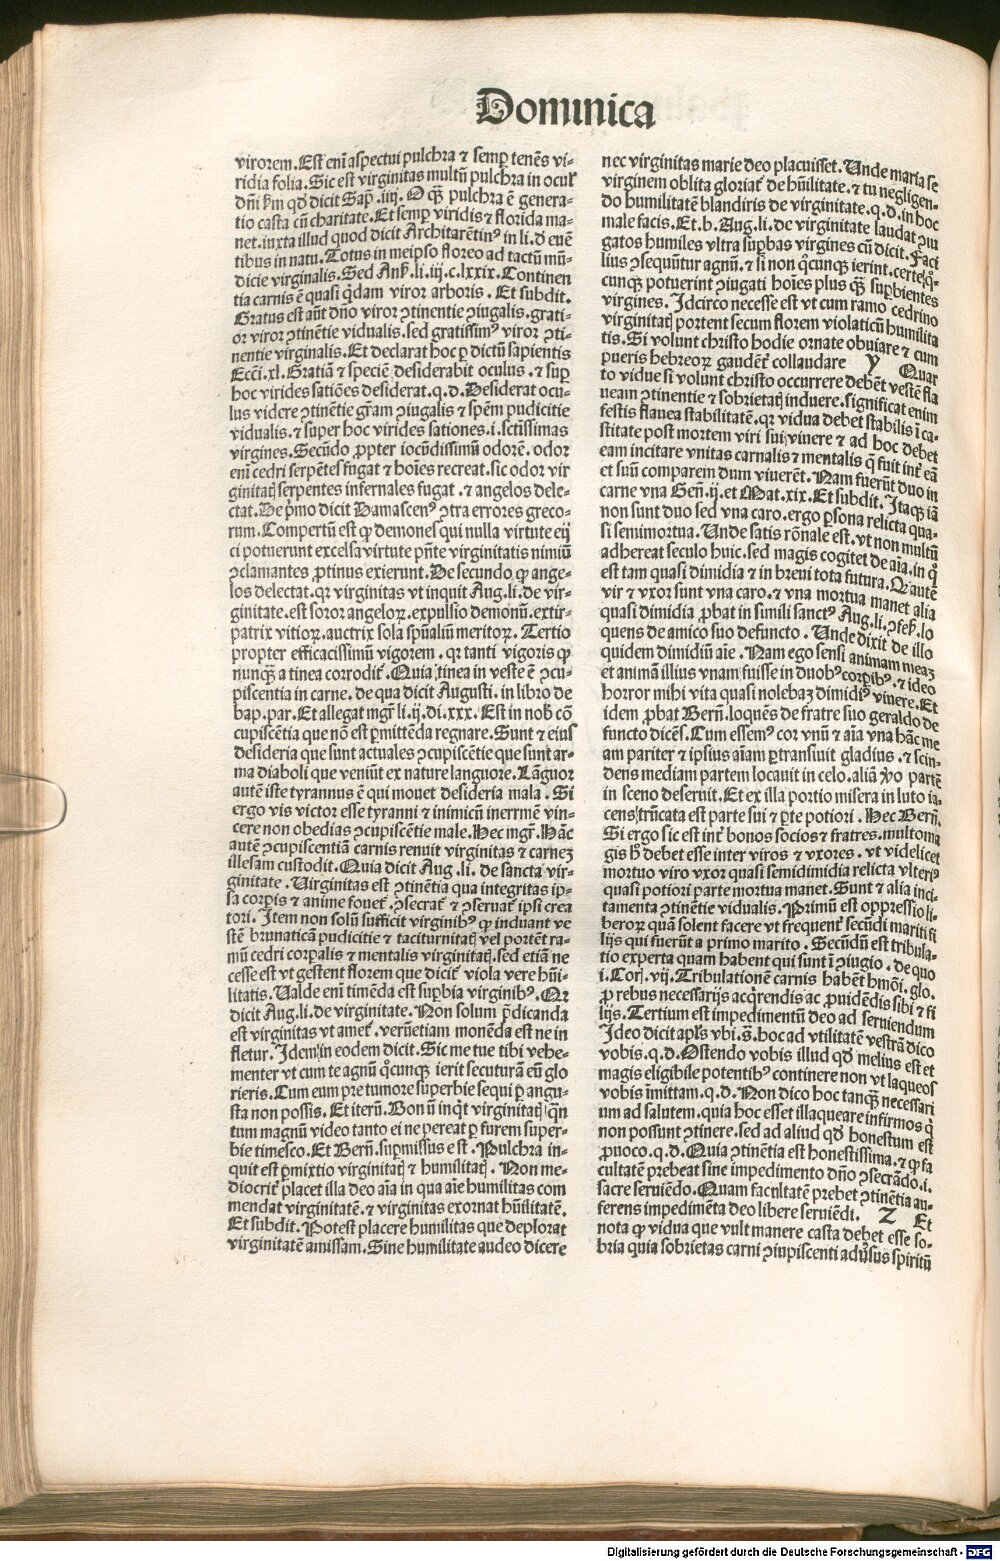 Dominica
virorem. Est eni aspectui pulchra ⁊ semp tenēs vi-
ridia folia. Sic est virginitas multū pulchra in ocul
dñi km qd dicit Sap. iiij. O qȝ pulchra ē genera-
tio casta cū charitate. Et semp viridis ⁊ florida ma-
net. iuxta illud quod dicit Architarētinꝰ in li. d euē
tibus in natu. Totus in meipso floreo ad tactū mū-
dicie virginalis. Sed Anß. li. iij. c. lxxix. Continen
tia carnis ē quasi qdam viror arboris. Et subdit.
Gratus est aūt dño viror ꝯtinentie ꝯiugalis. grati-
or viror ꝯtinētie vidualis. sed gratissimꝰ viror ꝯti-
nentie virginalis. Et declarat hoc ꝑ dictū sapientis
Ecci. xl. Gratiā ⁊ speciē desiderabit oculus. ⁊ suꝑ
hoc virides satiōes desiderat. q. d. Desiderat ocu-
lus videre ꝯtinētie grām ꝯiugalis ⁊ spēm pudicitie
vidualis. ⁊ super hoc virides sationes. i. sctissimas
virgines. Secūdo ꝓpter iocūdissimū odorē. odor
eni cedri serpētes fugat ⁊ hoies recreat. sic odor vir
ginitatꝭ serpentes infernales fugat. ⁊ angelos dele-
ctat. De pmo dicit Damascenꝰ ꝯtra errores greco-
rum. Compertū est ꝙ demones qui nulla virtute eij
ci potuerunt excelsa virtute pñte virginitatis nimiū
ꝯclamantes ꝓtinus exierunt. De secundo ꝙ ange-
los delectat. qꝛ virginitas vt inquit Aug. li. de vir-
ginitate. est soror angeloꝝ. expulsio demonū. extir-
patrix vitioꝝ. auctrix sola spūaliū meritoꝝ. Tertio
propter efficacissimū vigorem. qꝛ tanti vigoris ꝙ
nunqȝ a tinea corrodit. Quia tinea in veste ē ꝯcu-
piscentia in carne. de qua dicit Augusti. in libro de
bap. par. Et allegat mgr li. ij. di. xxx. Est in nob cō
cupiscētia que nō est ꝑmittēda regnare. Sunt ⁊ eius
desideria que sunt actuales ꝯcupiscētie que sunt ar-
ma diaboli que veniūt ex nature languore. Lāguor
autē iste tyrannus ē qui mouet desideria mala. Si
ergo vis victor esse tyranni ⁊ inimicū inermē vin-
cere non obedias ꝯcupiscētie male. Hec mgr. Hāc
autē ꝯcupiscentiā carnis renuit virginitas ⁊ carneȝ
illesam custodit. Quia dicit Aug. li. de sancta vir-
ginitate. Uirginitas est ꝯtinētia qua integritas ip-
sa corpis ⁊ anime fouet. ꝯsecrat ⁊ ꝯseruat ipsi crea
tori. Item non solū sufficit virginibꝰ ꝙ induant ve
stē brunaticā pudicitie ⁊ taciturnitatꝭ vel portēt ra-
mū cedri corpalis ⁊ mentalis virginitatꝭ. sed etiā ne
cesse est vt gestent florem que dicit viola vere hūi-
litatis. Ualde eni timēda est supbia virginibꝰ. Qꝛ
dicit Aug. li. de virginitate. Non solum pdicanda
est virginitas vt amet. veruetiam monēda est ne in
fletur. Idem in eodem dicit. Sic me tue tibi vehe-
menter vt cum te agnū qcunqȝ ierit secuturā eū glo
rieris. Cum eum pre tumore superbie sequi ꝑ angu-
sta non possis. Et iterū. Bon ū inqt virginitatꝭ qn
tum magnū video tanto ei ne pereat ꝑ furem super-
bie timesco. Et Bern. supmissus est. Pulchra in-
quit est pmixtio virginitatꝭ ⁊ humilitatꝭ. Non me-
diocrit placet illa deo aia in qua aie humilitas com
mendat virginitatē. ⁊ virginitas exornat hūilitatē.
Et subdit. Potest placere humilitas que deplorat
virginitatē amissam. Sine humilitate audeo dicere
nec virginitas marie deo placuisset. Unde maria se
virginem oblita gloriat de hūilitate. ⁊ tu negligen-
do humilitatē blandiris de virginitate. q. d. in hoc
male facis. Et. b. Aug. li. de virginitate laudat ꝯiu
gatos humiles vltra supbas virgines cū dicit. Faci
lius ꝯsequūtur agnū. ⁊ si non qcunqȝ ierint. certe q-
cunqȝ potuerint ꝯiugati hoies plus qȝ supbientes
virgines. Idcirco necesse est vt cum ramo cedrino
virginitatꝭ portent secum florem violaticū humilita
tis. Si volunt christo hodie ornate obuiare ⁊ cum
pueris hebreoꝝ gaudēt collaudare Y Quar
to vidue si volunt christo occurrere debēt vestē fla
ueam ꝯtinentie ⁊ sobrietatꝭ induere. significat enim
festis flauea stabilitatē. qꝛ vidua debet stabilis i ca-
stitate post mortem viri sui viuere ⁊ ad hoc debet
eam incitare vnitas carnalis ⁊ mentalis q fuit int eā
et suū comparem dum viuerēt. Nam fuerūt duo in
carne vna Gen. ij. et Mat. xix. Et subdit. Itaqȝ iā
non sunt duo sed vna caro. ergo psona relicta qua-
si semimortua. Unde satis rōnale est. vt non multū
adhereat seculo huic. sed magis cogitet de aia. in q
est tam quasi dimidia ⁊ in breui tota futura. Q autē
vir ⁊ vxor sunt vna caro. ⁊ vna mortua manet alia
quasi dimidia ꝓbat in simili sanctꝰ Aug. li. ꝯfeß. lo
quens de amico suo defuncto. Unde dixit de illo
quidem dimidiū aie. Nam ego sensi animam meaȝ
et animā illius vnam fuisse in duobꝰ corpibꝰ. ⁊ ideo
horror mihi vita quasi nolebaȝ dimidiꝰ viuere. Et
idem ꝓbat Bern. loquēs de fratre suo geraldo de
functo dicēs. Cum essemꝰ cor vnū ⁊ aia vna hāc me
am pariter ⁊ ipsius aiam ptransiuit gladius. ⁊ scin-
dens mediam partem locauit in celo. aliā vo partē
in sceno deseruit. Et ex illa portio misera in luto ia-
cens trūcata est parte sui ⁊ pte potiori. Hec Bern.
Si ergo sic est int bonos socios ⁊ fratres. multoma
gis h debet esse inter viros ⁊ vxores. vt videlicet
mortuo viro vxor quasi semidimidia relicta vlteriꝰ
quasi potiori parte mortua manet. Sunt ⁊ alia inci
tamenta ꝯtinētie vidualis. Primū est oppressio li-
beroꝝ quā solent facere vt frequent secūdi mariti fi
lijs qui fuerūt a primo marito. Secūdū est tribula-
tio experta quam habent qui sunt i ꝯiugio. de quo
i. Cor. vij. Tribulationē carnis habēt hmōi. glo.
ꝓ rebus necessarijs acqrendis ac ꝓuidēdis sibi ⁊ fi
lijs. Tertium est impedimentū deo ad seruiendum
Ideo dicit apls vbi. s. hoc ad vtilitatē vestrā dico
vobis. q. d. Ostendo vobis illud qd melius est et
magis eligibile potentibꝰ continere non vt laqueos
vobis imittam. q. d. Non dico hoc tanqȝ necessari
um ad salutem. quia hoc esset illaqueare infirmos q
non possunt ꝯtinere. sed ad aliud qd honestum est
ꝓuoco. q. d. Quia ꝯtinētia est honestissima. ⁊ ꝙ fa
cultatē prebeat sine impedimento dño ꝯsecrādo. i.
sacre seruiēdo. Quam facultatē prebet ꝯtinētia au-
ferens impedimēta deo libere seruiēdi. Z Et
nota ꝙ vidua que vult manere casta debet esse so-
bria quia sobrietas carni ꝯiupiscenti aduersus spiritū
Digitalisierung gefördert durch die Deutsche Forschungsgemeinschaft - DFG